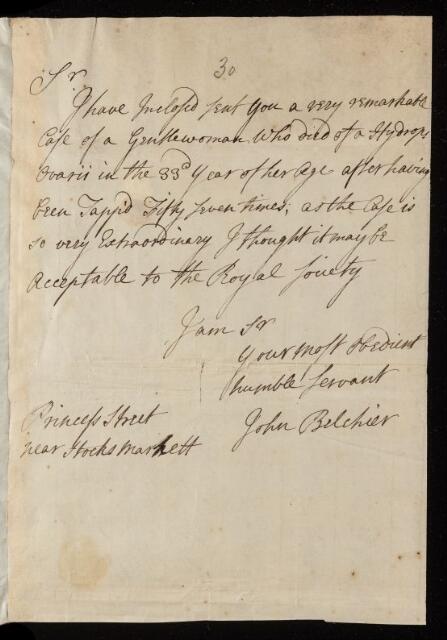 30
Sr
I have Inclosed sent you a very remarkable
Case of a Gentlewoman Who died of a Hydrops
Ovarii in the 33d Year of her Age after having
been Tapp'd Fifty seven times; as the Case is
so very Extraordinary I thought it may be
Acceptable to the Royal Society
I am Sr
your most obedient
humble Servant
Princess Street
John Belchier
near Stocks Markett